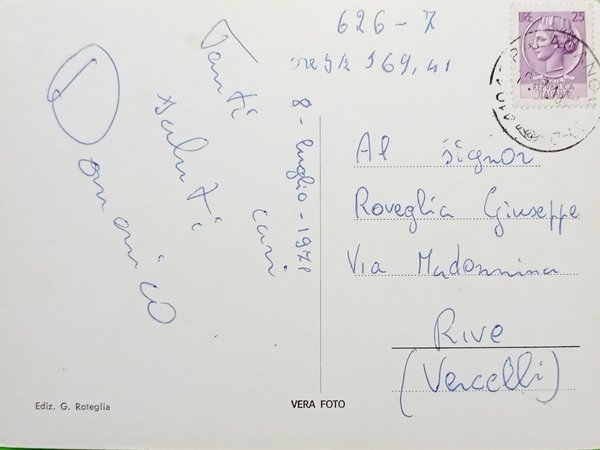 626-7
169,41
Tanti
saluti
cari
Domenico
8-luglio-1971
Al signor
Roveglia Giuseppe
Via Madonnina
Rive
(Vercelli)
LIRE 25
REPVBBLICA
ITALIANA
Ediz. G. Roteglia
VERA FOTO